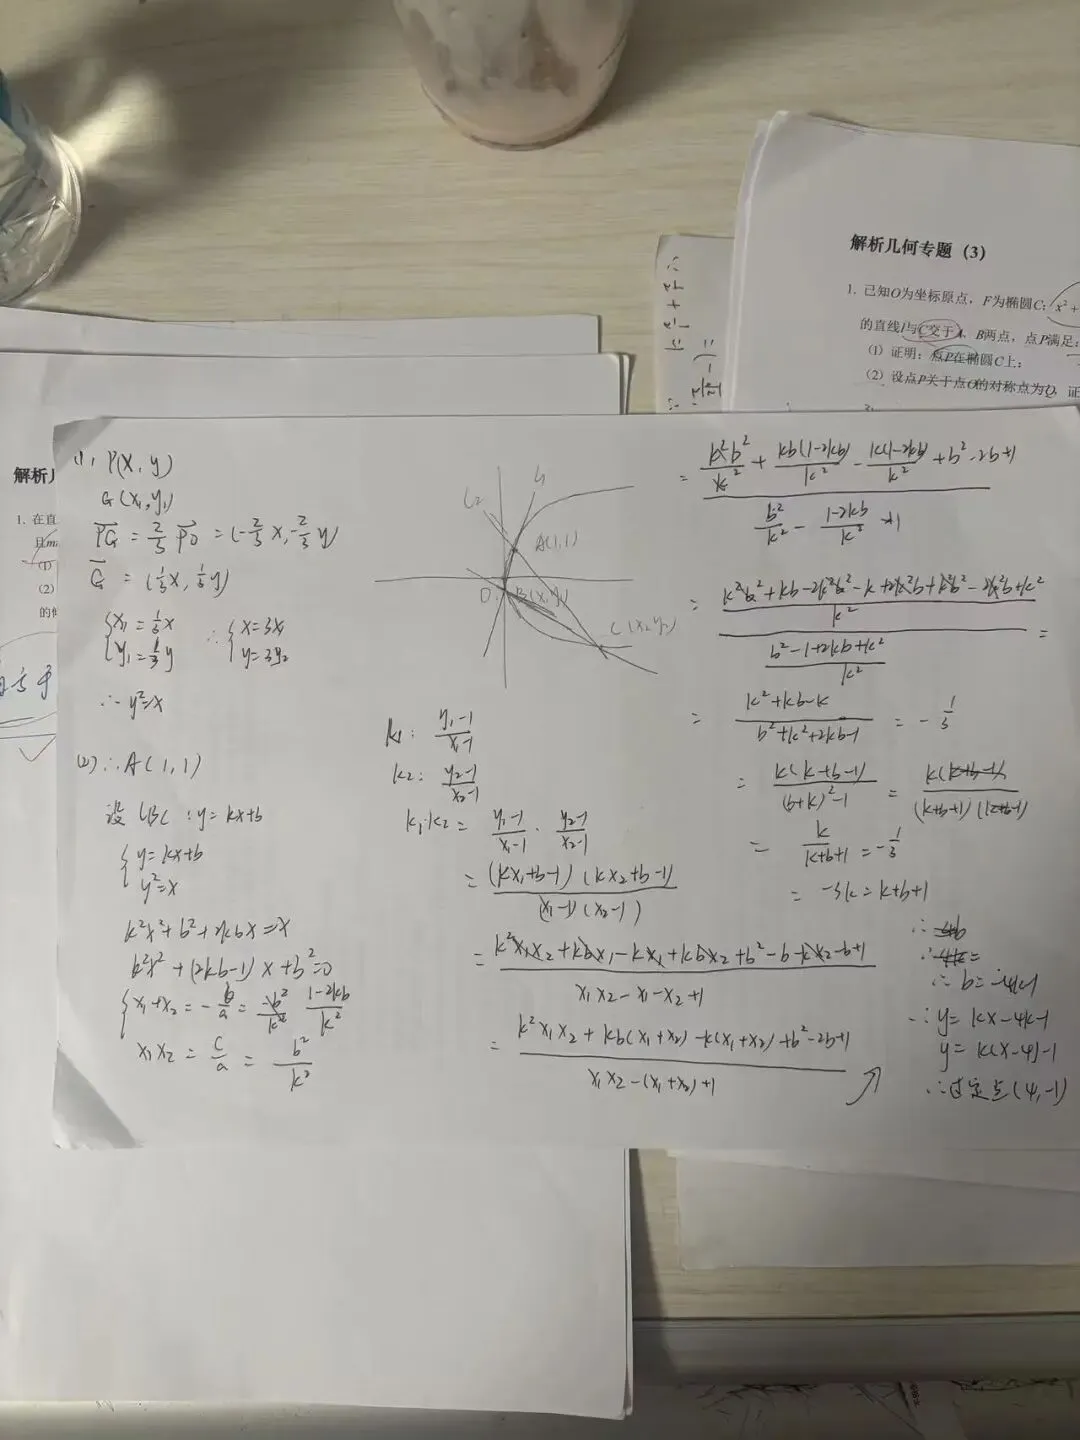 解析几何专题（3）
1. 已知O为坐标原点，F为椭圆C: x²+
的直线l与C交于A、B两点，点P满足:
(1) 证明：点P在椭圆C上；
(2) 设点P关于点O的对称点为Q，证
解析
1. 在直
且m
(1)
(2)
的
(1), P(x, y)
G(x₁, y₁)
PG = 2/3 PO = (-2/3 x, -2/3 y)
G = (1/3 x, 1/3 y)
{x₁ = 1/3 x
{y₁ = 1/3 y
∴ {x = 3x₁
{y = 3y₂
∴ y² = x
(2) ∴ A(1, 1)
设 LBC : y = kx+b
{y = kx+b
y² = x
k²x² + b² + 2kbx = x
k²x² + (2kb-1)x + b² = 0
{x₁+x₂ = -b/a = (1-2kb)/k²
x₁x₂ = c/a = b²/k²
L₂
L₁
A(1,1)
O
B(x₁y₁)
C(x₂y₂)
k₁: (y₁-1)/(x₁-1)
k₂: (y₂-1)/(x₂-1)
k₁·k₂ = (y₁-1)/(x₁-1) · (y₂-1)/(x₂-1)
= (kx₁+b-1)(kx₂+b-1)/((x₁-1)(x₂-1))
= (k²x₁x₂+kbx₁-kx₁+kbx₂+b²-b-kx₂-b+1)/(x₁x₂-x₁-x₂+1)
= (k²x₁x₂+kb(x₁+x₂)-k(x₁+x₂)+b²-2b+1)/(x₁x₂-(x₁+x₂)+1)
= (k²b²/k² + kb(1-2kb)/k² - k(1-2kb)/k² + b²-2b+1)/(b²/k² - (1-2kb)/k² +1)
= ((k²b²+kb-2k²b²-k+2k²b+k²b²-2k²b+k²)/k²)/((b²-1+2kb+k²)/k²) =
= (k²+kb-k)/(b²+k²+2kb-1) = -1/3
= k(k+b-1)/((b+k)²-1) = k(k+b-1)/((k+b+1)(k+b-1))
= k/(k+b+1) = -1/3
= -3k = k+b+1
∴ 4b
∴ 4k =
∴ b = -4k-1
∴ y = kx-4k-1
y = k(x-4)-1
∴ 过定点(4,-1)